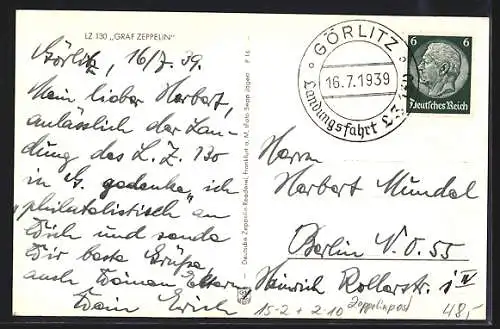 LZ 130 „GRAF ZEPPELIN"
Görlitz, 16/7. 39.
Mein lieber Herbert,
anlässlich der Lan-
dung des L. Z. 130
in G. gedenke ich
philatelistisch an
Dich und sende
Dir beste Grüße,
auch Deinen Eltern,
Dein Erich
Deutsche Zeppelin-Reederei, Frankfurt a. M. (Foto Sepp Jäger) P 16
GÖRLITZ
16.7.1939
Landungsfahrt LZ 130
6 6
Deutsches Reich
Herrn
Herbert Mundel
Berlin N.O. 55
Heinrich Rollerstr. IV
15-2 + 2-10 Zeppelinpost
48,-